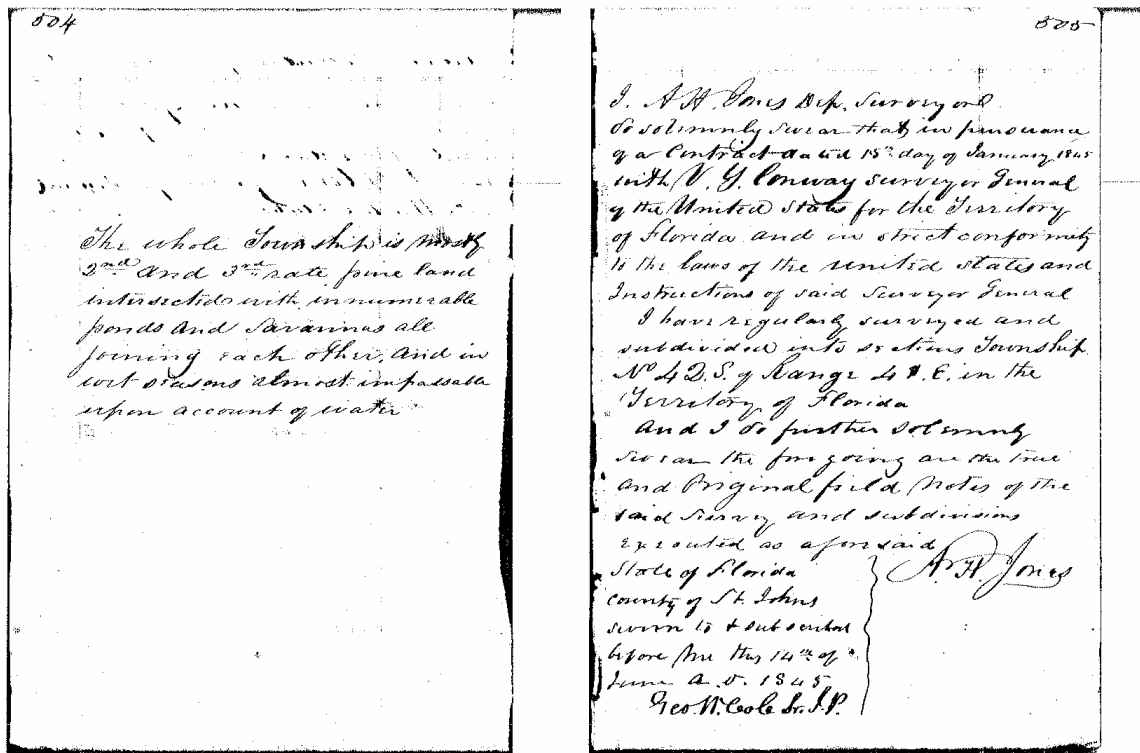 504
The whole Township is mostly
2nd and 3rd rate pine land
intersected with innumerable
ponds and Savannas all
joining each other, and in
wet seasons almost impassable
upon account of water
505
I. A H. Jones Dep. Surveyor
do solemnly swear that in persuance
of a Contract dated 15th day of January 1845
with V. Y. Conway surveyor General
of the United States for the Territory
of Florida and in strict conformity
to the laws of the united states and
Instructions of said Surveyor General
I have regularly surveyed and
subdivided into sections Township
No 42. S. of Range 41. E. in the
Territory of Florida
And I do further solemnly
swear the foregoing are the true
and Original field Notes of the
said Survey and subdivisions
executed as aforesaid
A. H. Jones
State of Florida
county of St. Johns
sworn to & subscribed
before me this 14th of
June A. D. 1845
Geo. W. Cole Sr. J.P.